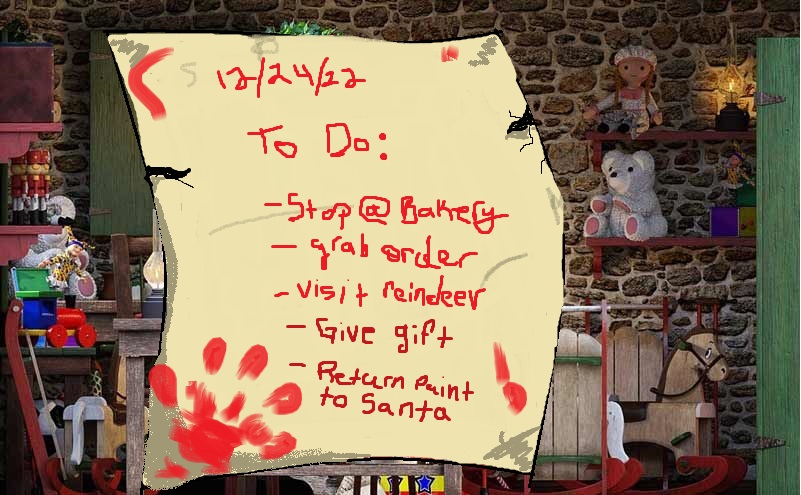 12/24/22
To Do:
- Stop @ Bakery
- grab order
- visit reindeer
- Give gift
- Return paint
to Santa